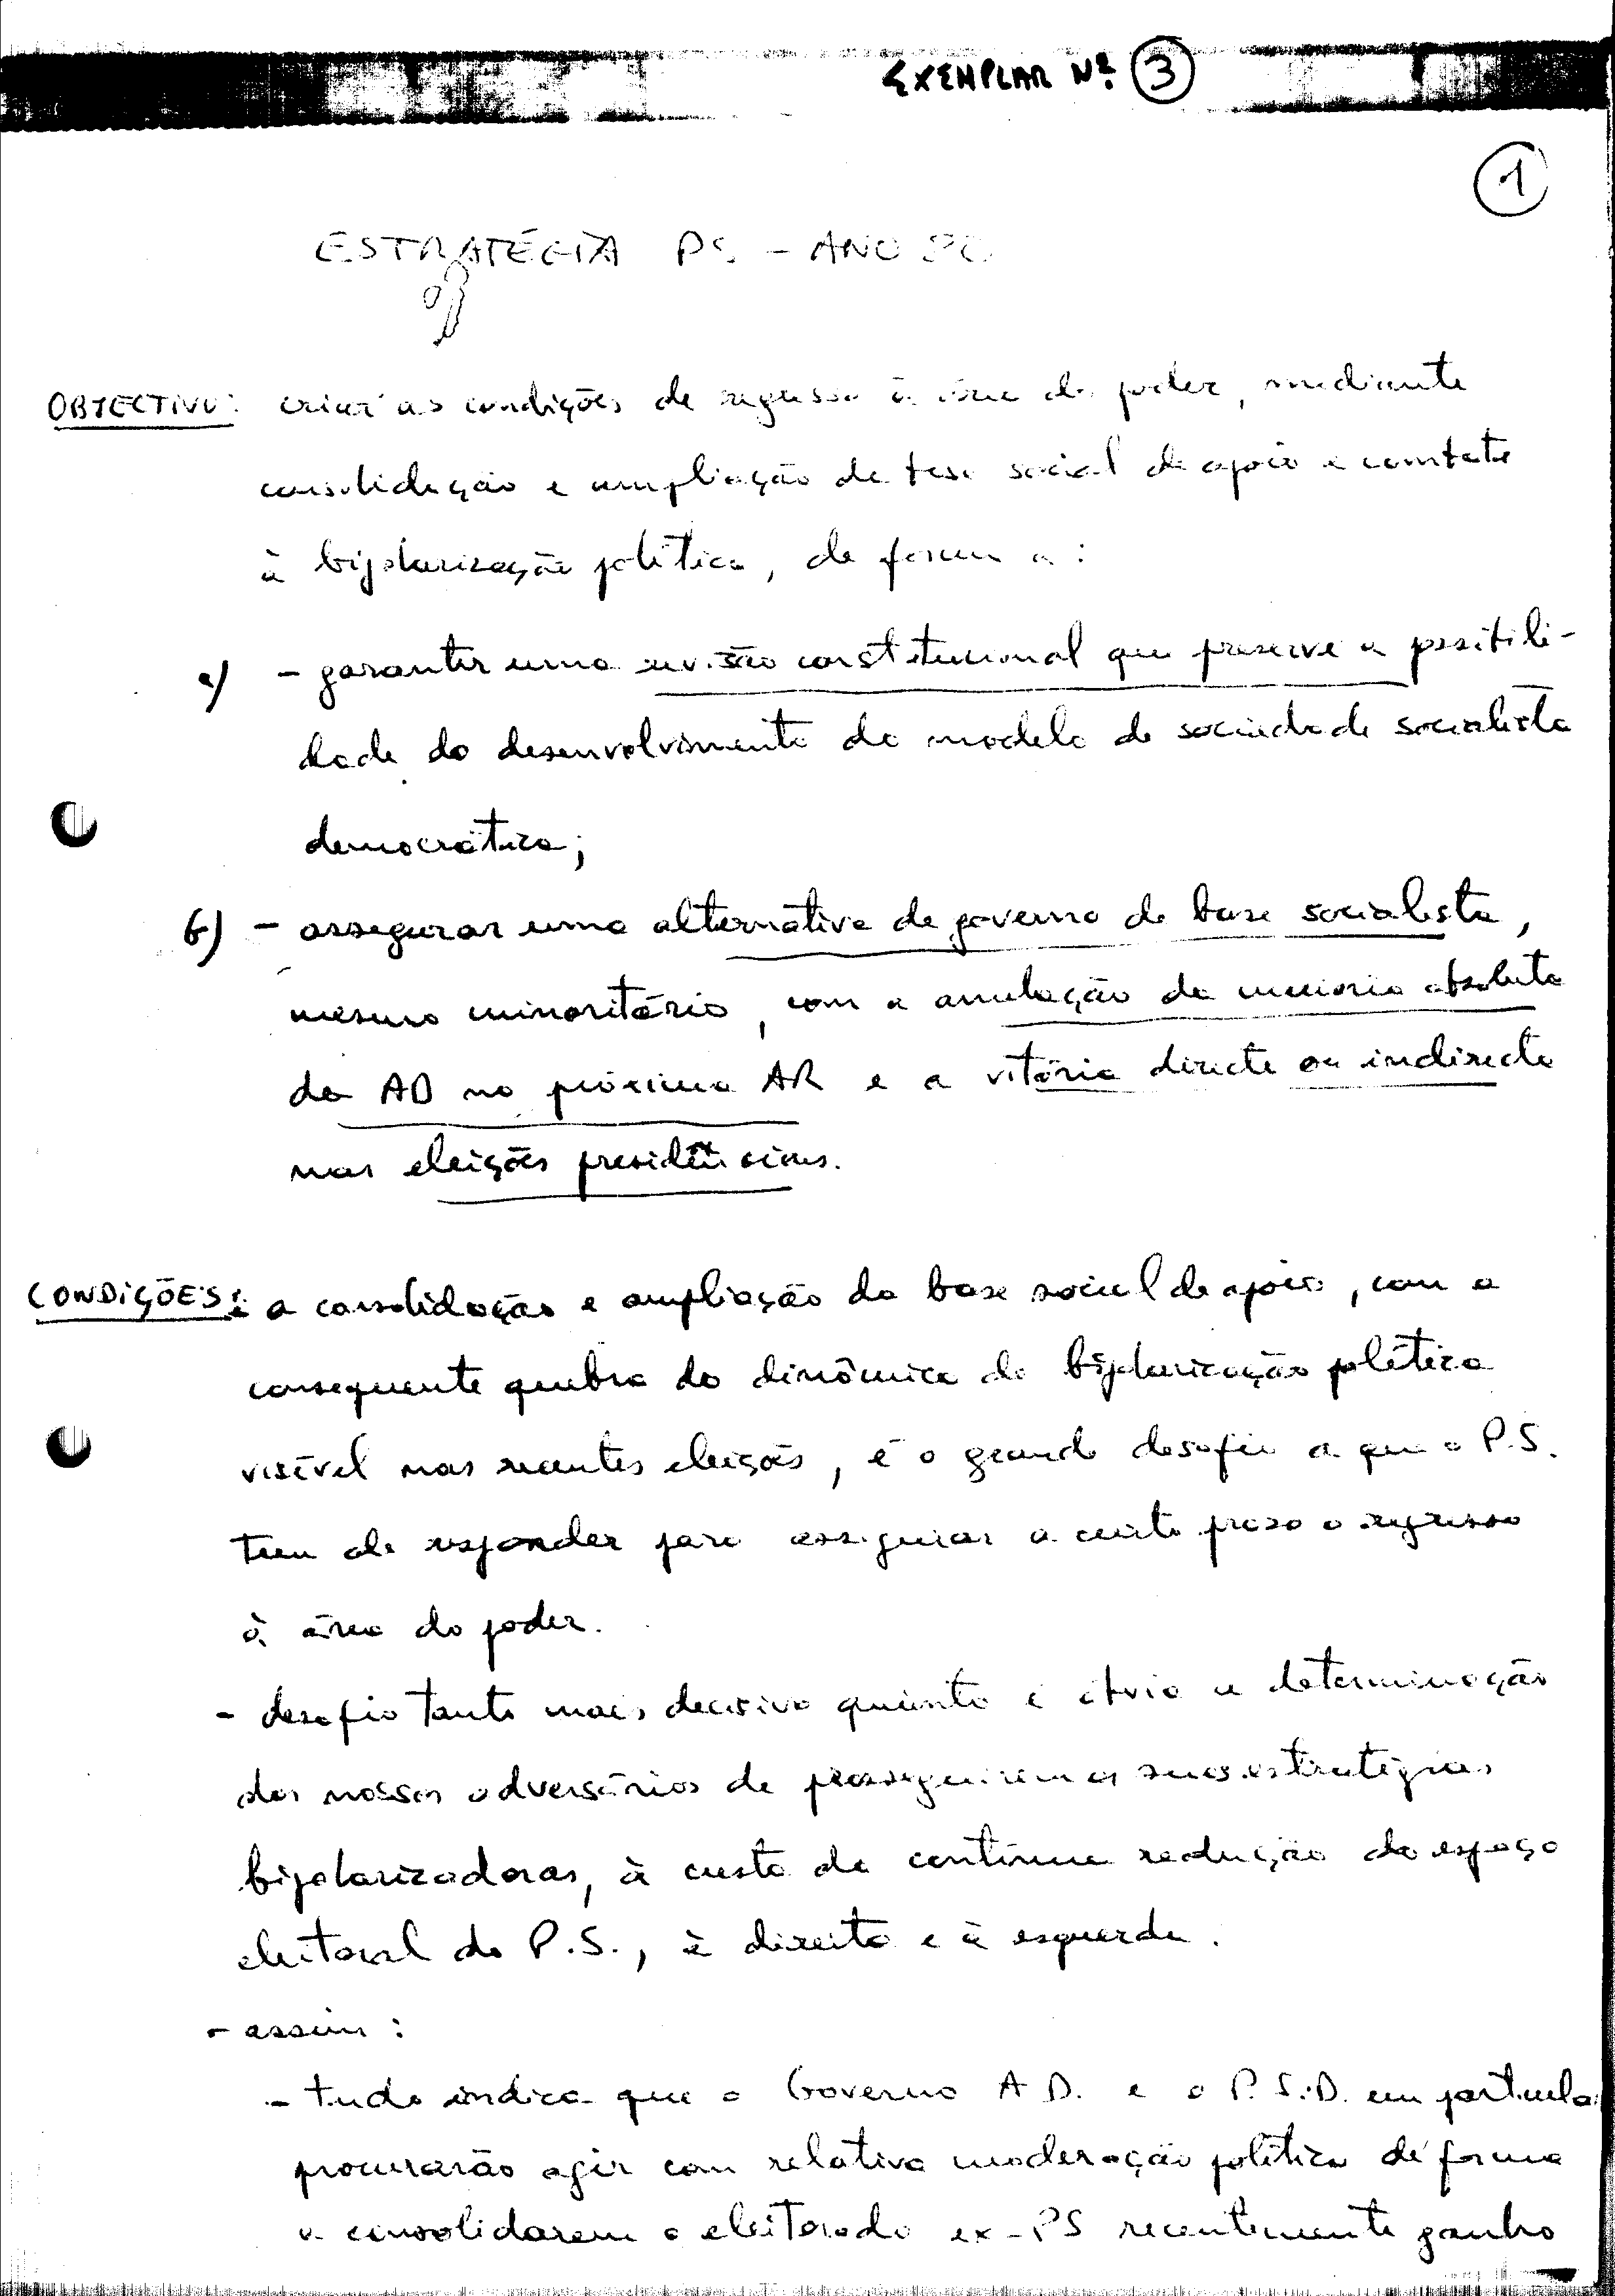 EXEMPLAR Nº 3
1
ESTRATÉGIA PS - ANO 80
OBJECTIVO: criar as condições de regresso à área do poder, mediante
consolidação e ampliação da base social de apoio e combate
à bipolarização política, de forma a:
a) - garantir uma revisão constitucional que preserve a possibili-
dade do desenvolvimento do modelo de sociedade socialista
democrática;
b) - assegurar uma alternativa de governo de base socialista,
mesmo minoritário, com a anulação da maioria absoluta
da AD na próxima AR e a vitória directa ou indirecta
nas eleições presidenciais.
CONDIÇÕES: a consolidação e ampliação da base social de apoio, com a
consequente quebra da dinâmica de bipolarização política
visível nas recentes eleições, é o grande desafio a que o P.S.
tem de responder para assegurar a curto prazo o regresso
à área do poder.
- desafio tanto mais decisivo quanto é óbvia a determinação
dos nossos adversários de prosseguirem as suas estratégias
bipolarizadoras, à custa da contínua redução do espaço
eleitoral do P.S., à direita e à esquerda.
- assim:
- tudo indica que o Governo A D. e o P.S.D. em particular
procurarão agir com relativa moderação política de forma
a consolidarem o eleitorado ex-PS recentemente ganho